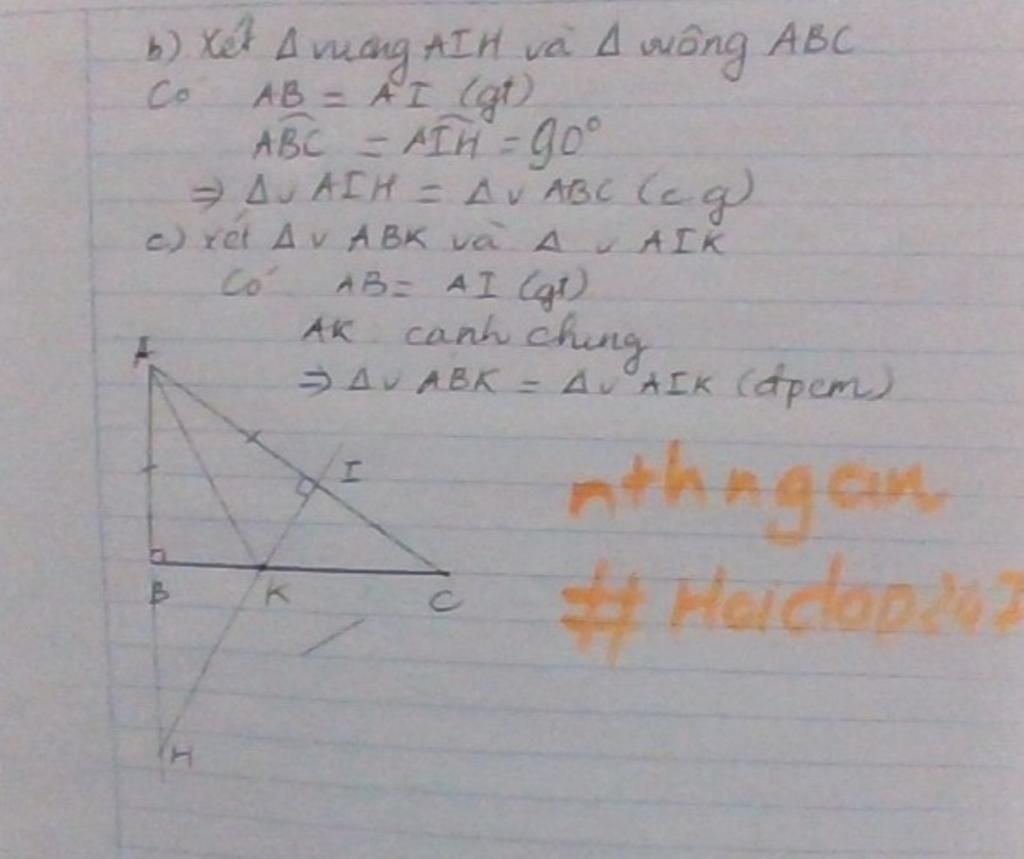 b) Xét Δ vuông AIH và Δ vuông ABC
Có AB = AI (gt)
ABC = AIH = 90°
⇒ Δv AIH = Δv ABC (c.g)
c) xét Δv ABK và Δ v AIK
Có AB = AI (gt)
AK canh chung
⇒ Δv ABK = Δv AIK (đpcm)
A
I
B K C
H
nthngan
# Hoidap247